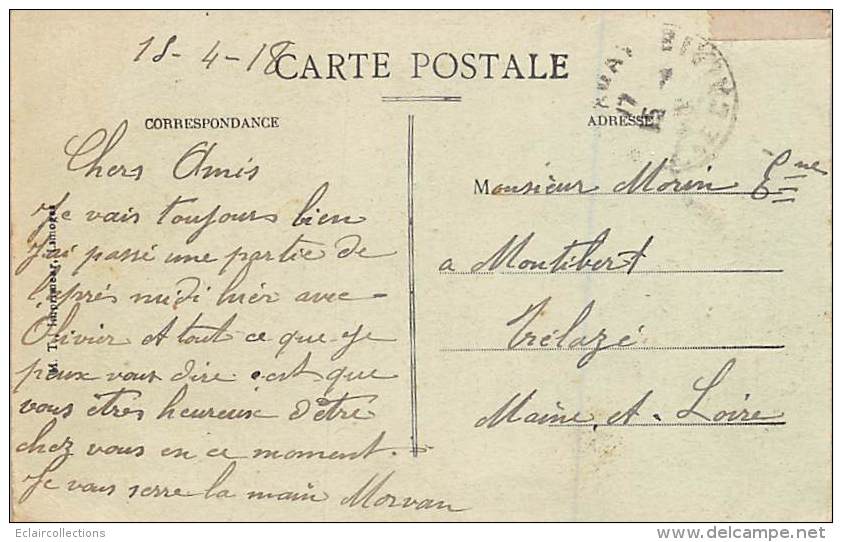 18-4-18
CARTE POSTALE
CORRESPONDANCE
ADRESSE
Chers Amis
Je vais toujours bien
J'ai passé une partie de
l'après midi hier avec
Olivier et tout ce que je
peux vous dire c'est que
vous êtres heureux d'être
chez vous en ce moment.
Je vous serre la main Morvan
Monsieur Morin
a Montibert
Trélazé
Maine et Loire
M. T. I., Imprimeur, Limoges
Eclaircollections
delcampe.net